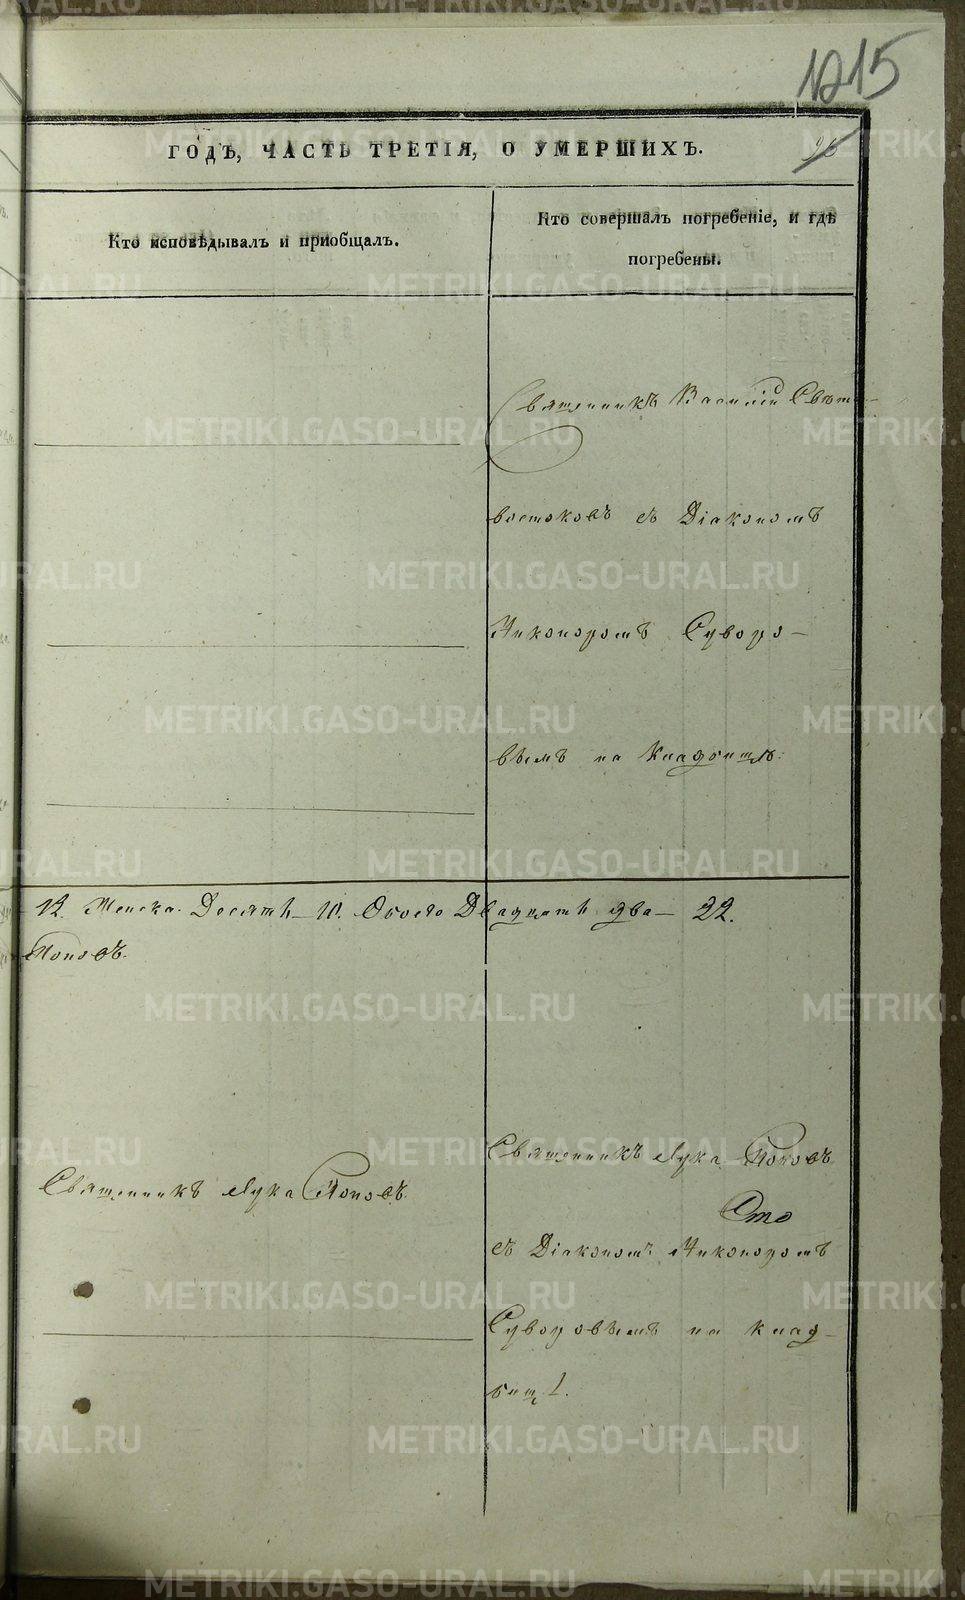 1215
96
ГОДЪ, ЧАСТЬ ТРЕТІЯ, О УМЕРШИХЪ.
Кто исповѣдывалъ и пріобщалъ.
Кто совершалъ погребеніе, и гдѣ
погребены.
Священникъ Василій Свѣто-
востоковъ съ Діакономъ
Никоноромъ Суворо-
вымъ на кладбищѣ.
12. Женска. Десять 10. Обоего Двадцать два 22.
Поповъ.
Священникъ Лука Поповъ
Священникъ Лука Поповъ.
съ Діакономъ Никоноромъ
Суворовымъ на клад-
бищѣ.
METRIKI.GASO-URAL.RU